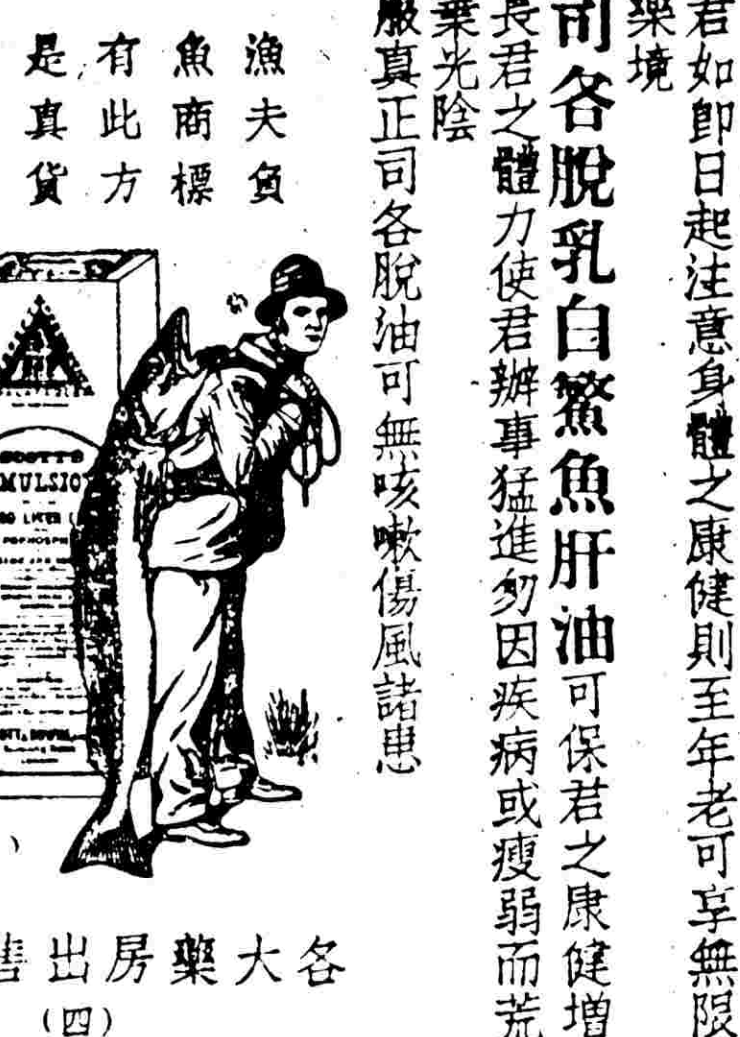 君如卽日起注意身體之康健則至年老可享無限
樂境
司各脫乳白鰵魚肝油可保君之康健增
長君之體力使君辦事猛進勿因疾病或瘦弱而荒
棄光陰
服真正司各脫油可無咳嗽傷風諸患
漁夫負
魚商標
有此方
是真貨
SCOTT'S
MULSIO
各大藥房出售
(四)